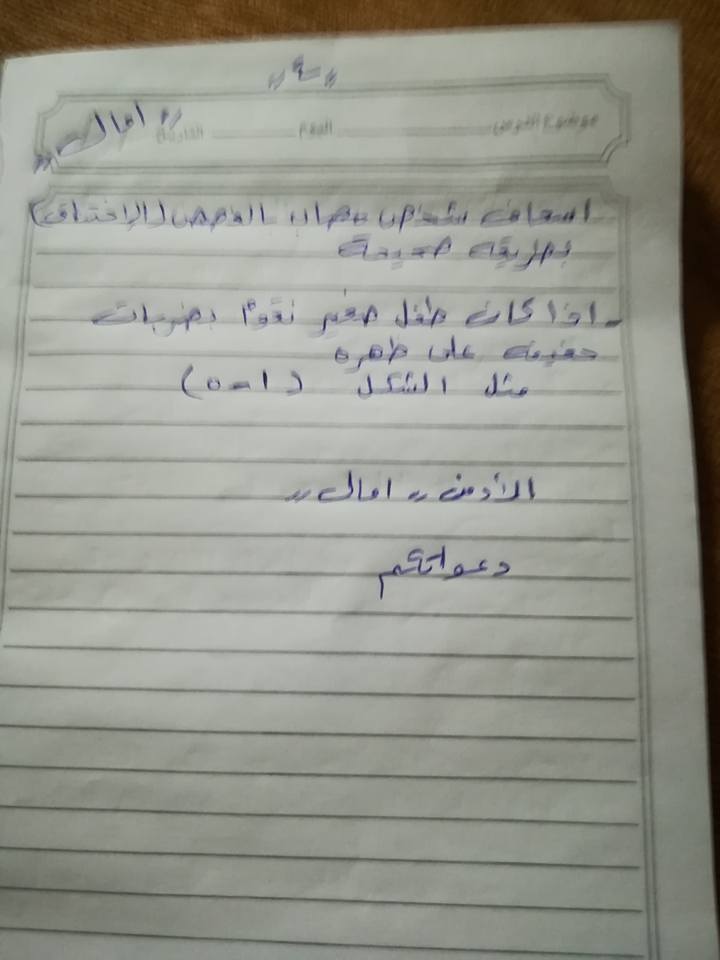 "٩"
موضوع الدرس اليوم التاريخ
"امال"
اسعاف شخص مصاب بالغصص (الإختناق)
بطريقه صحيحة
- اذا كان طفل صغير نقوم بضربات
خفيفه على ظهره
مثل الشكل (١-٥)
"امال"
دعواتكم